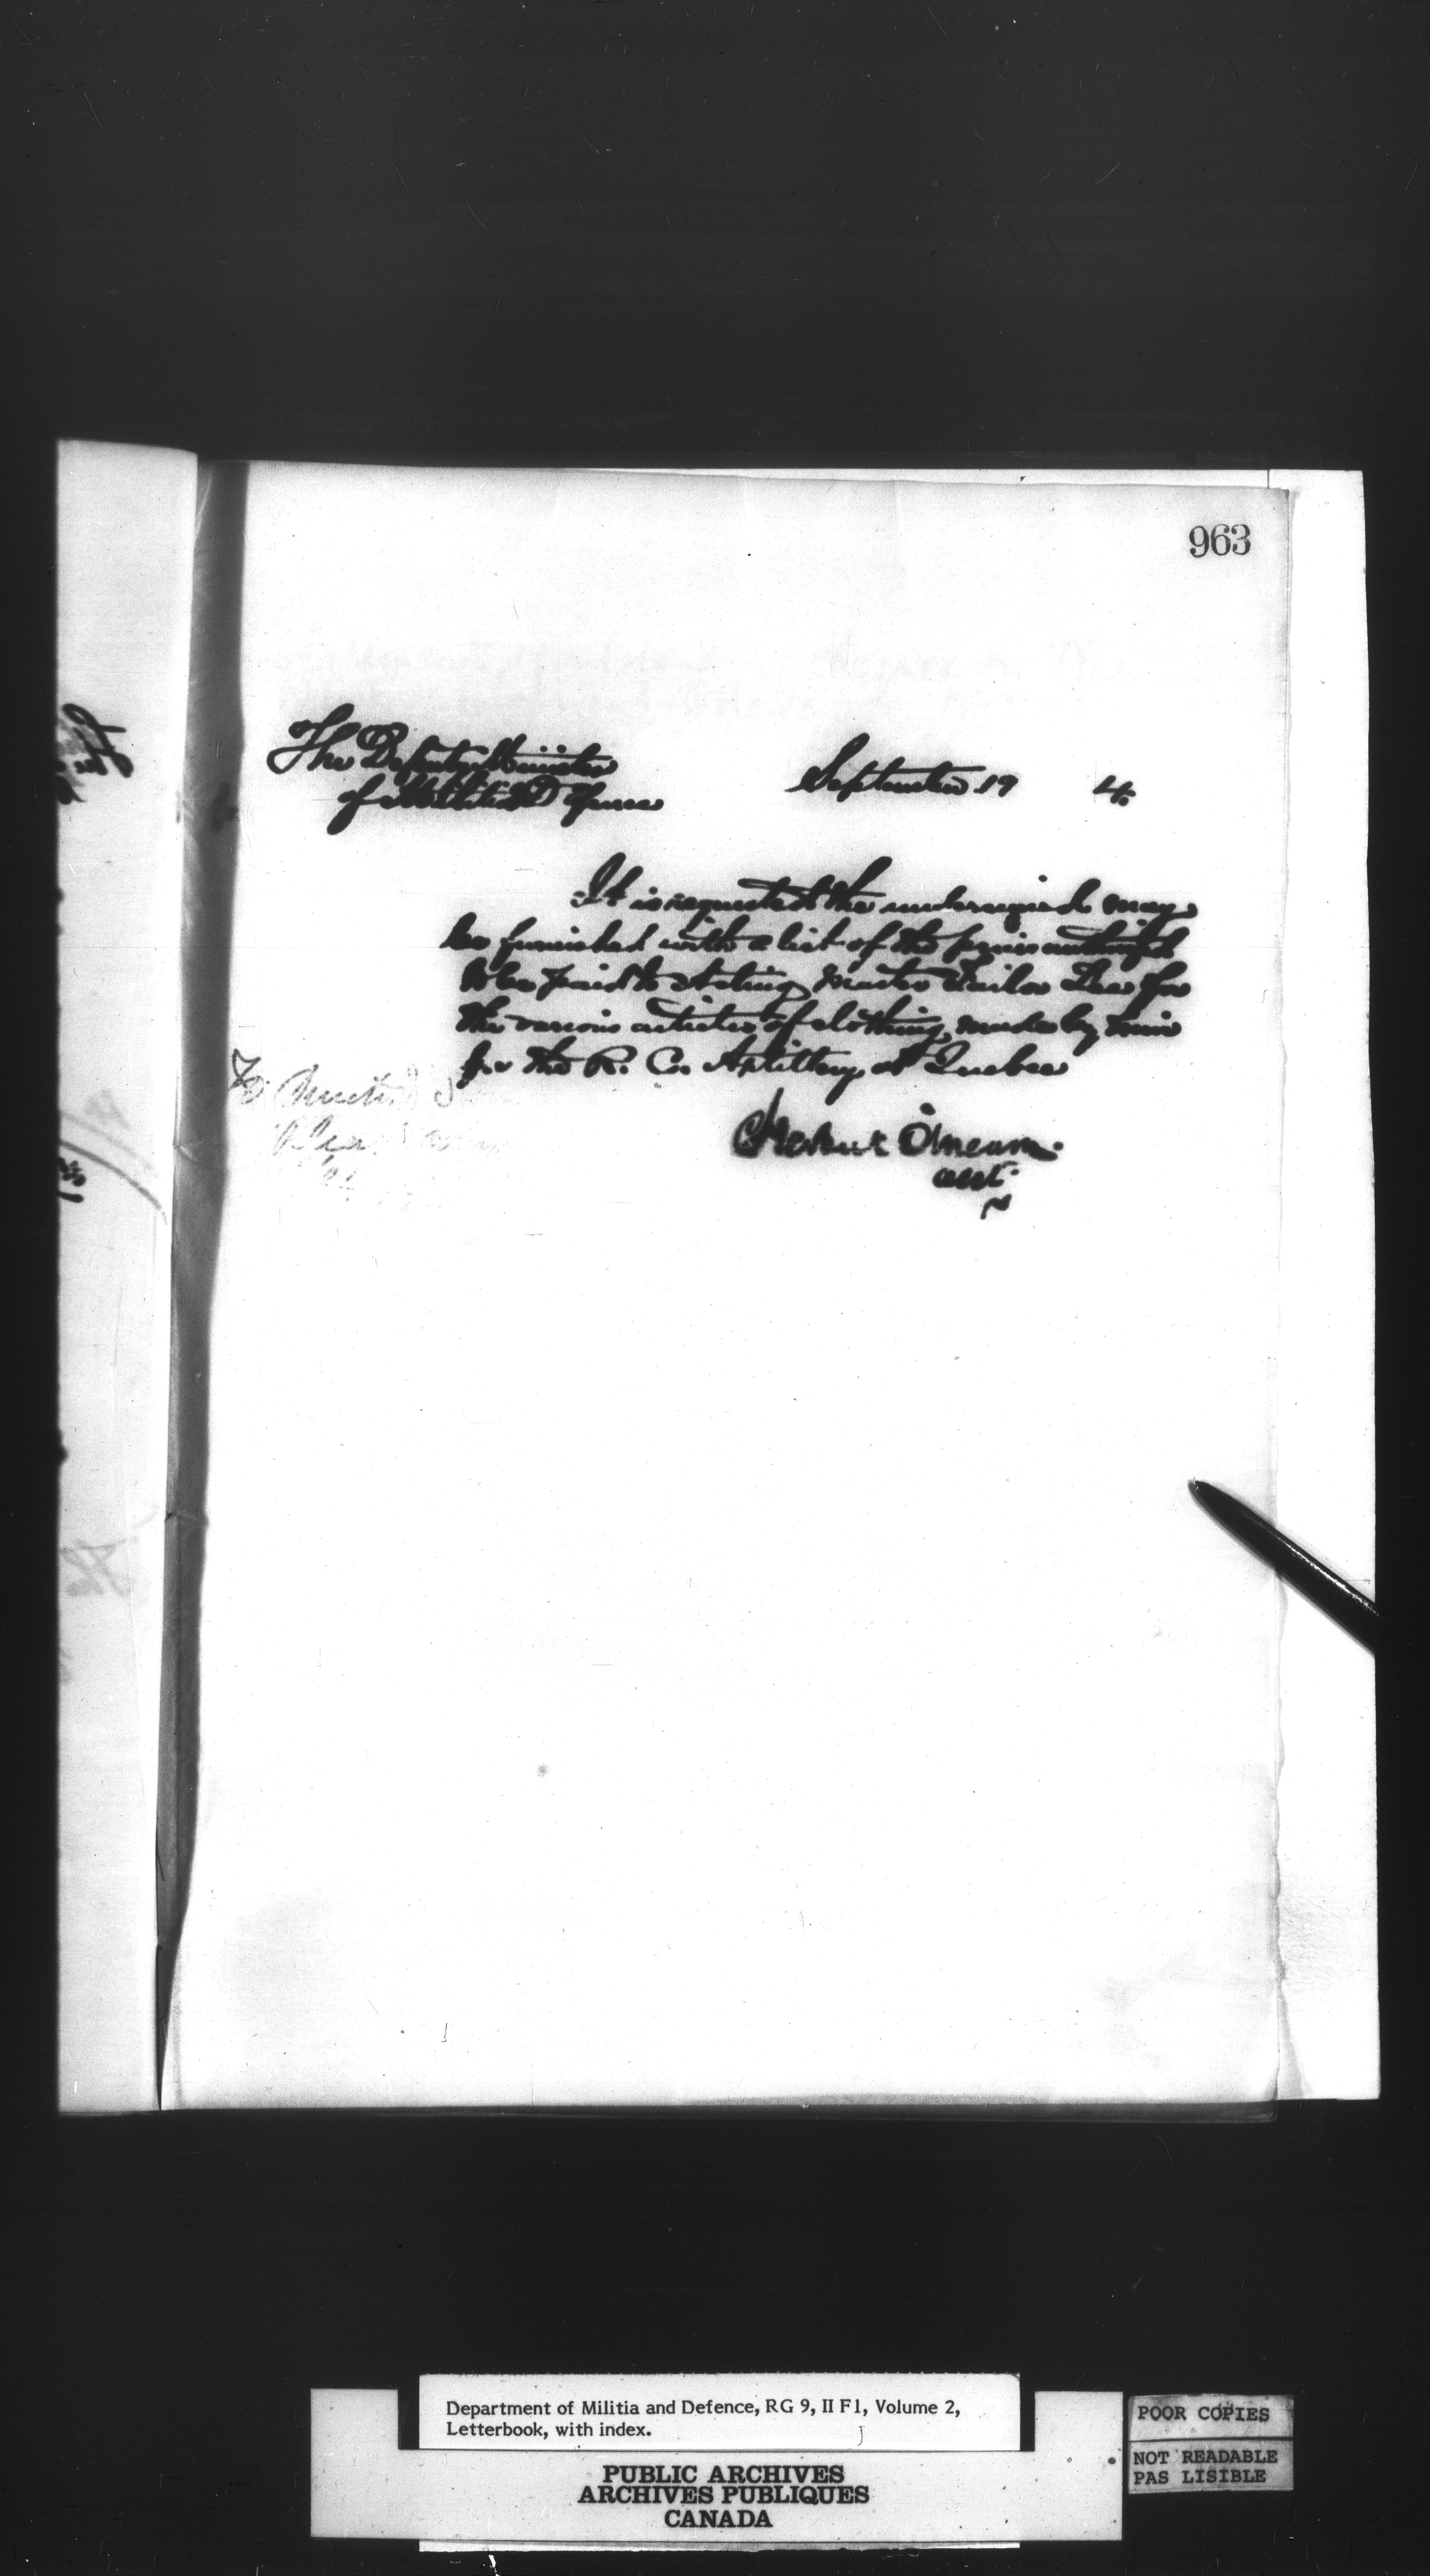 963
The Deputy Minister
of Militia & Defence
September 19 4.
It is requested the undersigned may
be furnished with a list of the prices authorized
to be paid to Acting Master Tailor for
the various articles of clothing made by him
for the R. C. Artillery at Quebec
O'Meara
To
Department of Militia and Defence, RG 9, II F1, Volume 2,
Letterbook, with index.
PUBLIC ARCHIVES
ARCHIVES PUBLIQUES
CANADA
POOR COPIES
NOT READABLE
PAS LISIBLE